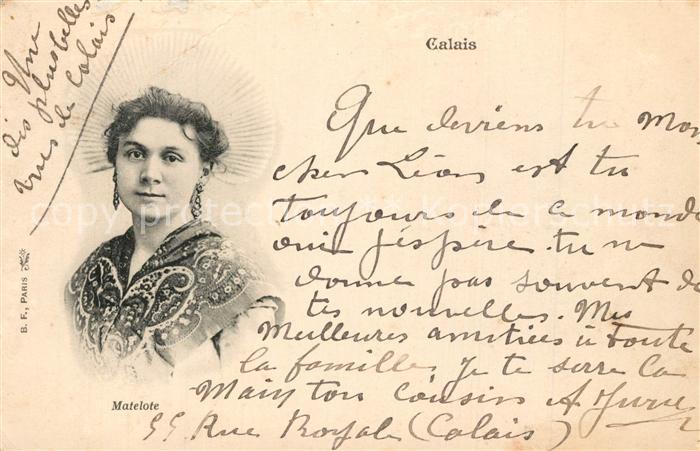 Une
des plus belles
vues de Calais
Calais
Que deviens tu Mon
cher Léon est tu
toujours de ce monde
oui j'éspère. tu ne
donne pas souvent de
tes nouvelles. Mes
Meilleures amitiées à toute
la famille. Je te serre la
Main ton cousin A
Rue Royale (Calais)
B. F., PARIS
Matelote